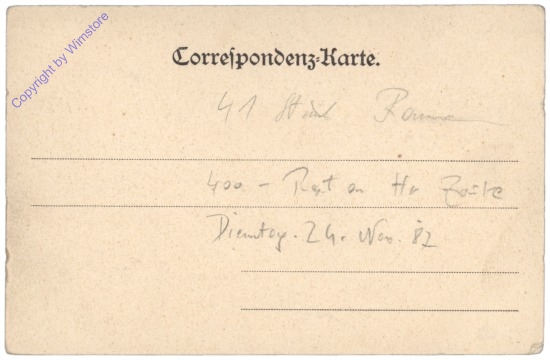 Copyright by Wimstore
Correspondenz-Karte.
41 Stück
400 - Rest an Hr
Dienstag. 24. Nov. 87